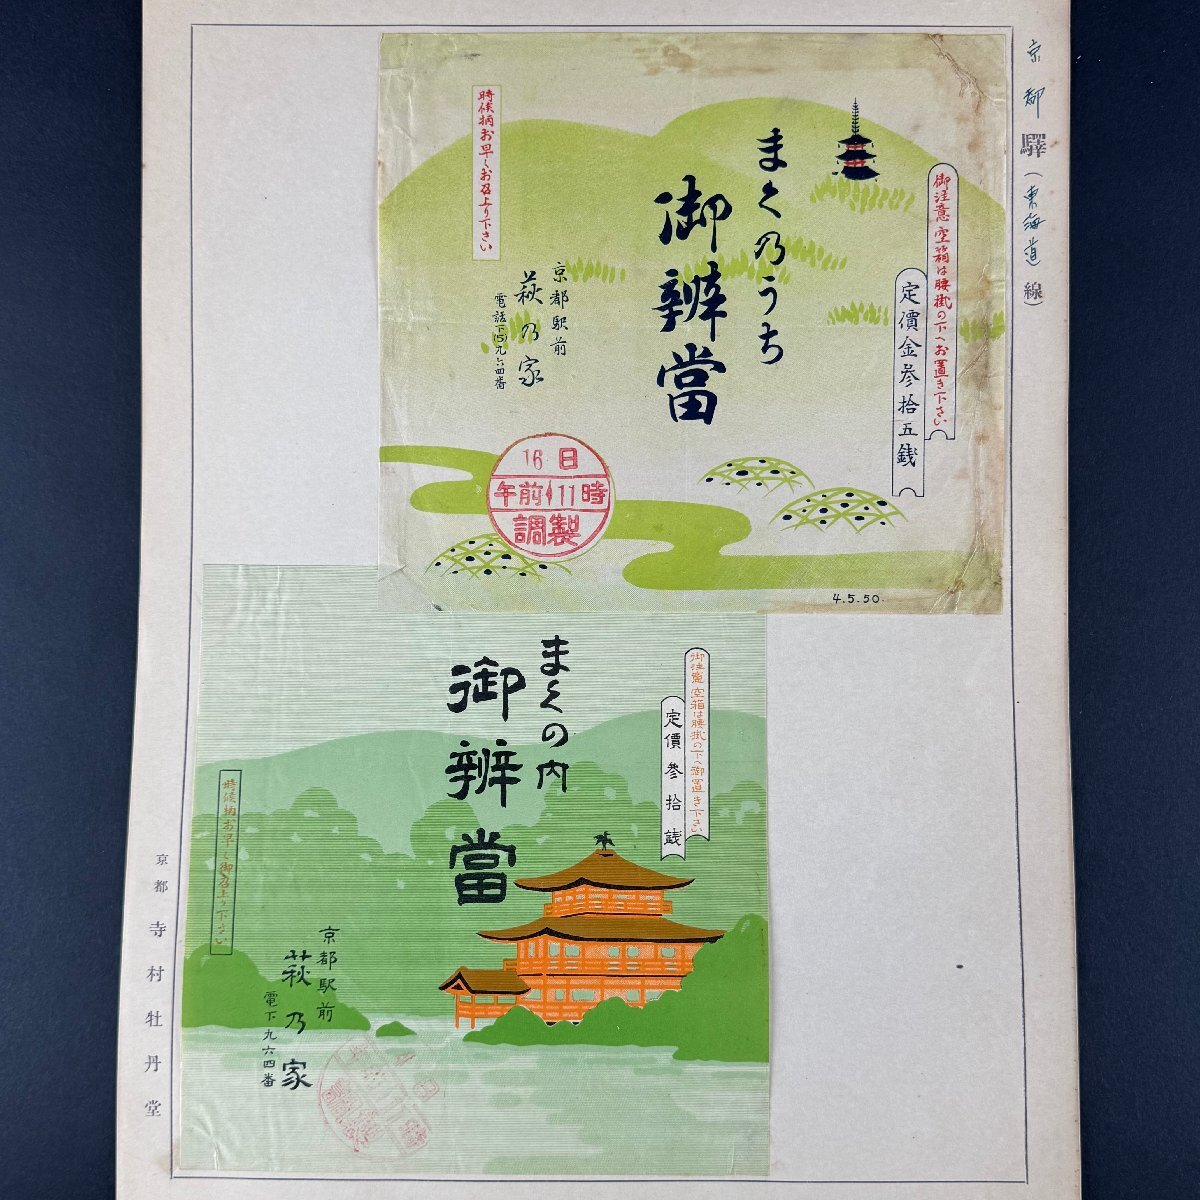 京都驛（東海道線）
御注意 空箱は腰掛の下へお置き下さい
定價金参拾五銭
まくのうち
御辨當
京都駅前
萩乃家
電話下(5)九六四番
時候柄お早くお召上り下さい
16日
午前11時
調製
4.5.50.
御注意 空箱は腰掛の下へ御置き下さい
定價参拾銭
まくの内
御辨當
京都駅前
萩乃家
電下九六四番
時候柄お早く御召上り下さい
京都 寺村牡丹堂